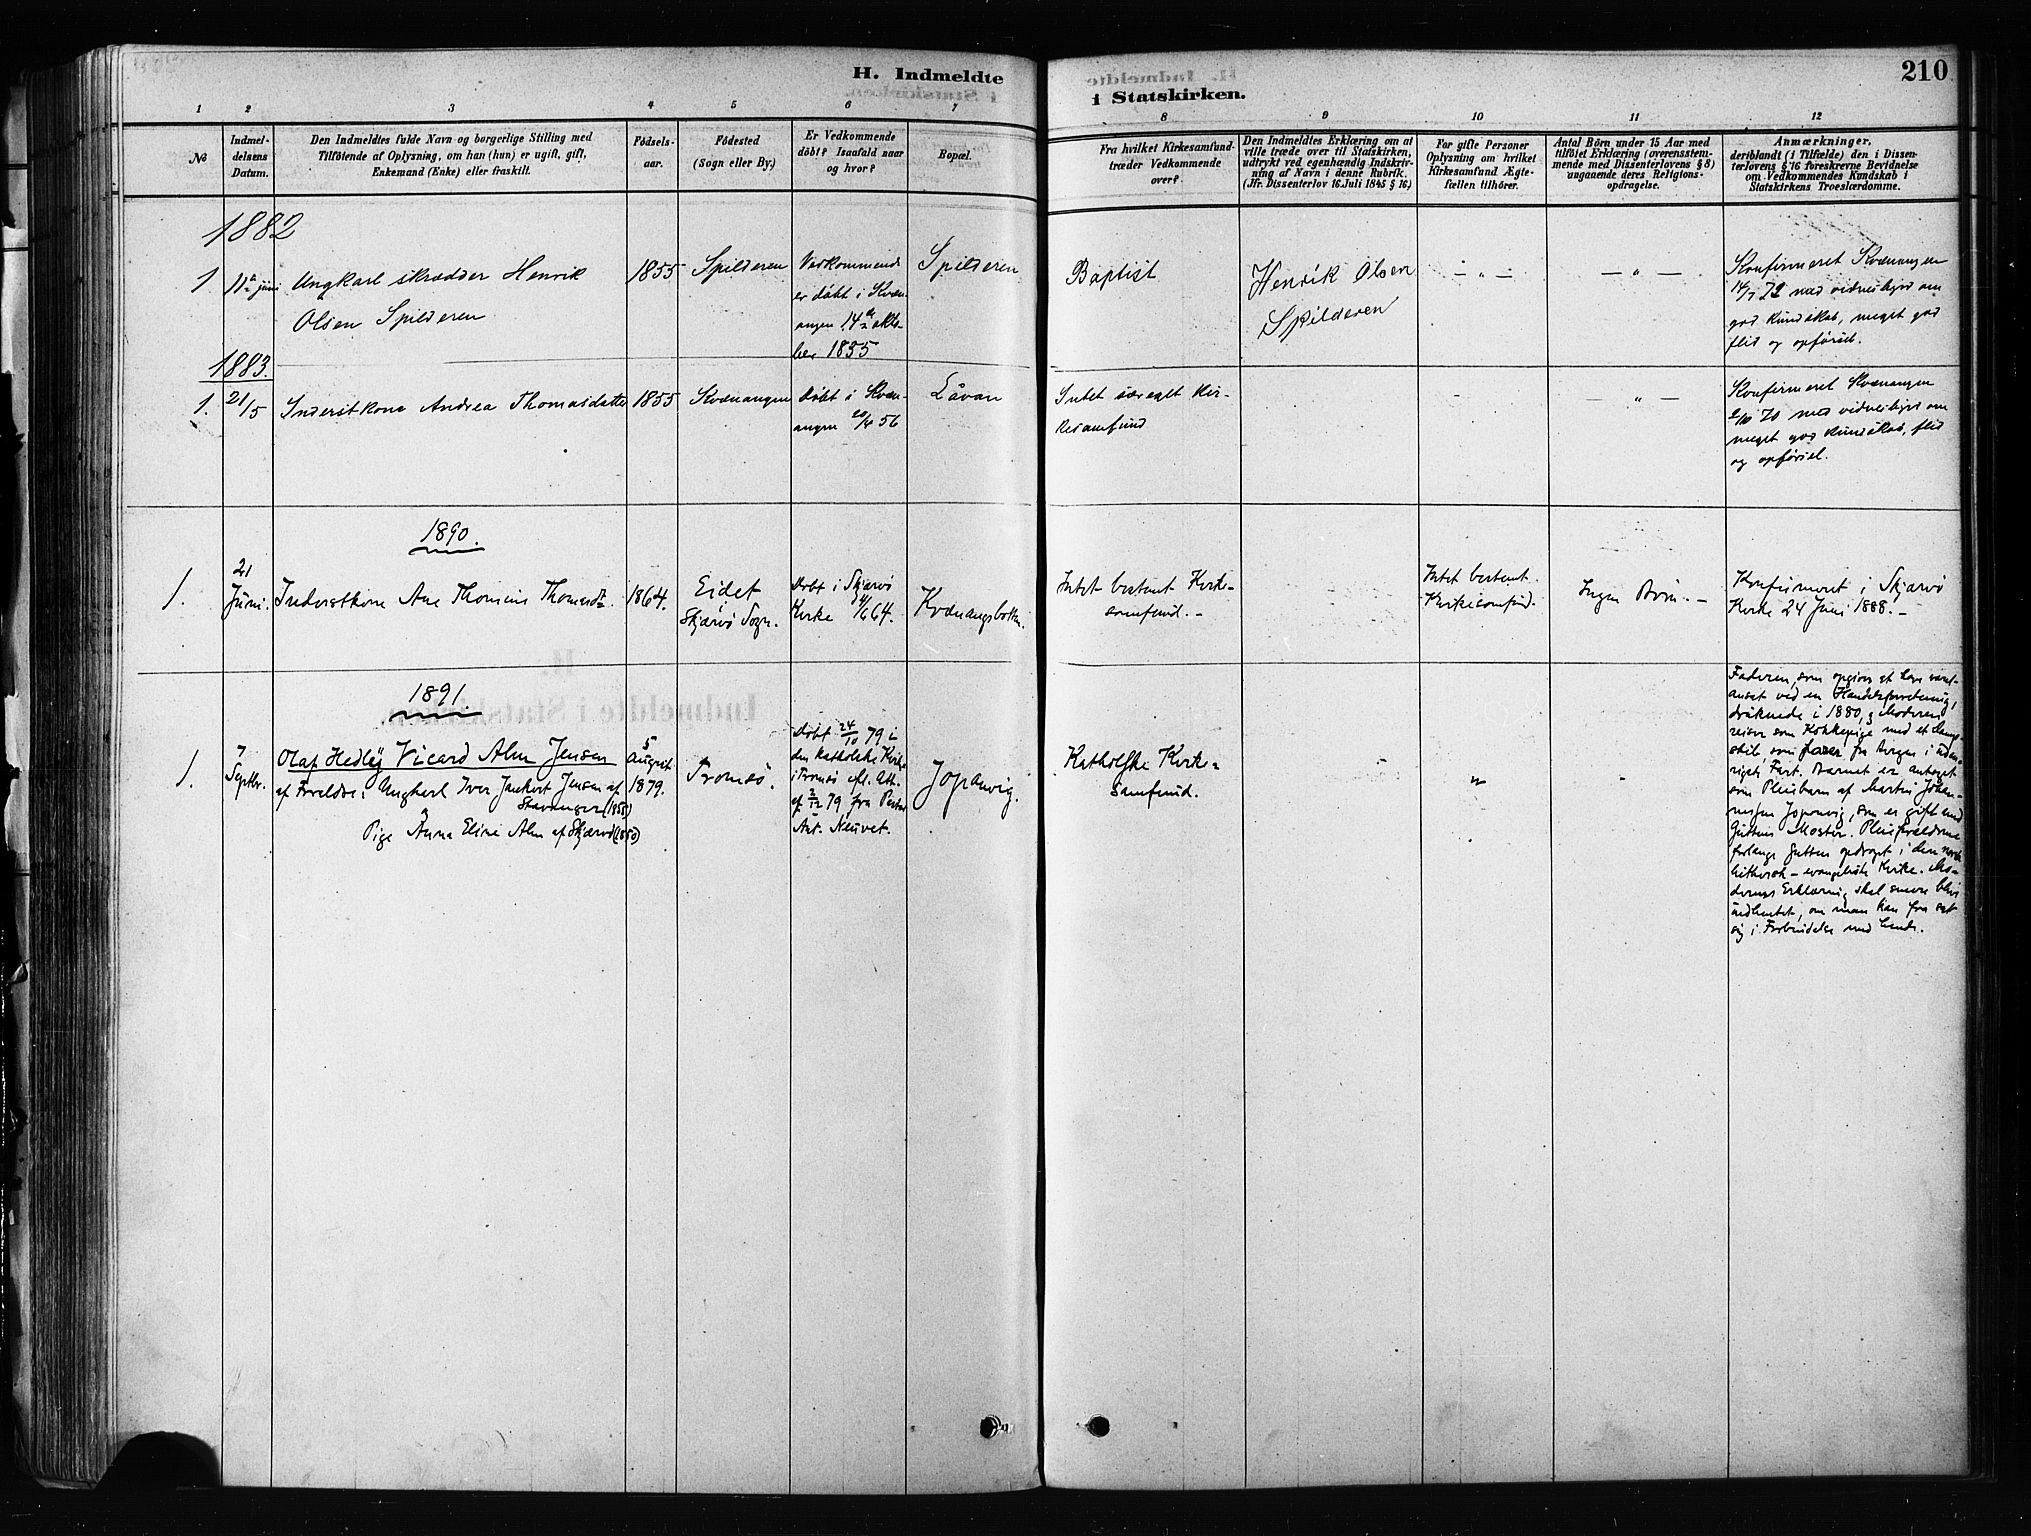 H. Indmeldte
i Statskirken.
210
1
2
3
4
5
6
7
8
9
10
11
12
No
Indmel-
delsens
Datum.
Den Indmeldtes fulde Navn og borgerlige Stilling med
Tilföiende af Oplysning, om han (hun) er ugift, gift,
Enkemand (Enke) eller fraskilt.
Födsels-
aar.
Födested
(Sogn eller By.)
Er Vedkommende
döbt? Isaafald naar
og hvor?
Bopæl.
Fra hvilket Kirkesamfund
træder Vedkommende
over?
Den Indmeldtes Erklæring om at
ville træde over til Statskirken,
udtrykt ved egenhændig Indskriv-
ning af Navn i denne Rubrik.
(Jfr. Dissenterlov 16. Juli 1845 § 16.)
For gifte Personer
Oplysning om hvilket
Kirkesamfund Ægte-
fællen tilhörer.
Antal Börn under 15 Aar med
tilföiet Erklæring (overensstem-
mende med Dissenterlovens § 8)
angaaende deres Religions-
opdragelse.
Anmærkninger,
deriblandt (i Tilfælde) den i Dissen-
terlovens § 16 foreskrevne Bevidnelse
om Vedkommendes Kundskab i
Statskirkens Troeslærdomme.
1882
1
11te juni
Ungkarl skrædder Henrik
Olsen Spilderen
1855
Spilderen
Vedkommende
er døbt i Kvæn-
angen 14de okto-
ber 1855
Spilderen
Baptist
Henrik Olsen
Spilderen
— „ —
— „ —
Konfirmeret Kvænangen
14/7 72 med vidnesbyrd om
god kundskab, meget god
flid og opførsel.
1883.
1.
21/5
Inderstkone Andrea Thomasdatter
1855
Kvænangen
Døbt i Kvæn-
angen 20/4 56
Låvan
Intet særegt Kir-
kesamfund
-
— „ —
Konfirmeret Kvænangen
2/10 70 med vidnesbyrd om
meget god kundskab, flid
og opførsel.
1890.
1.
21
Juni.
Inderstkone Ane Thomine Thomasdtr
1864.
Eidet
Skjærvø Sogn.
Døbt i Skjærvø
Kirke 4/6 64.
Kvænangsbotten.
Intet bestemt Kirke-
samfund. -
Intet bestemt
Kirkesamfund.
Ingen Børn. -
Konfirmeret i Skjærvø
Kirke 24 Juni 1888. -
1891
1.
7
Septbr.
Olaf Hedley Vicard Alm Jensen
af Forældre: Ungkarl Iver Jensen af
Stavanger (1855)
&
Pige Anna Eline Alm af Skjærvø (1850)
5
August
1879.
Tromsø.
Døbt 24/10 79 i
den katholske Kirke
i Tromsø efl. Att.
af 2/12 79 fra Pastor
Ant. Neuvet.
Jopanvig.
Katholske Kirke-
samfund.
-
"
-
Faderen, som opgives at have været
ansat ved en Handelsforretning,
druknede i 1880, & Moderen
reiser som Kokkepige med et Damp-
skib, som farer fra Bergen i uden-
rigsk Fart. Barnet er antaget
som Pleiebarn af Martin Johan-
nesen Jopanvig, som er gift med
Guttens Moster. Pleieforældrene
forlange Gutten opdraget i den norsk
luthersk-evangeliske Kirke. Mo-
derens Erklæring skal senere blive
indhentet, om man kan faa sat
sig i Forbindelse med hende.